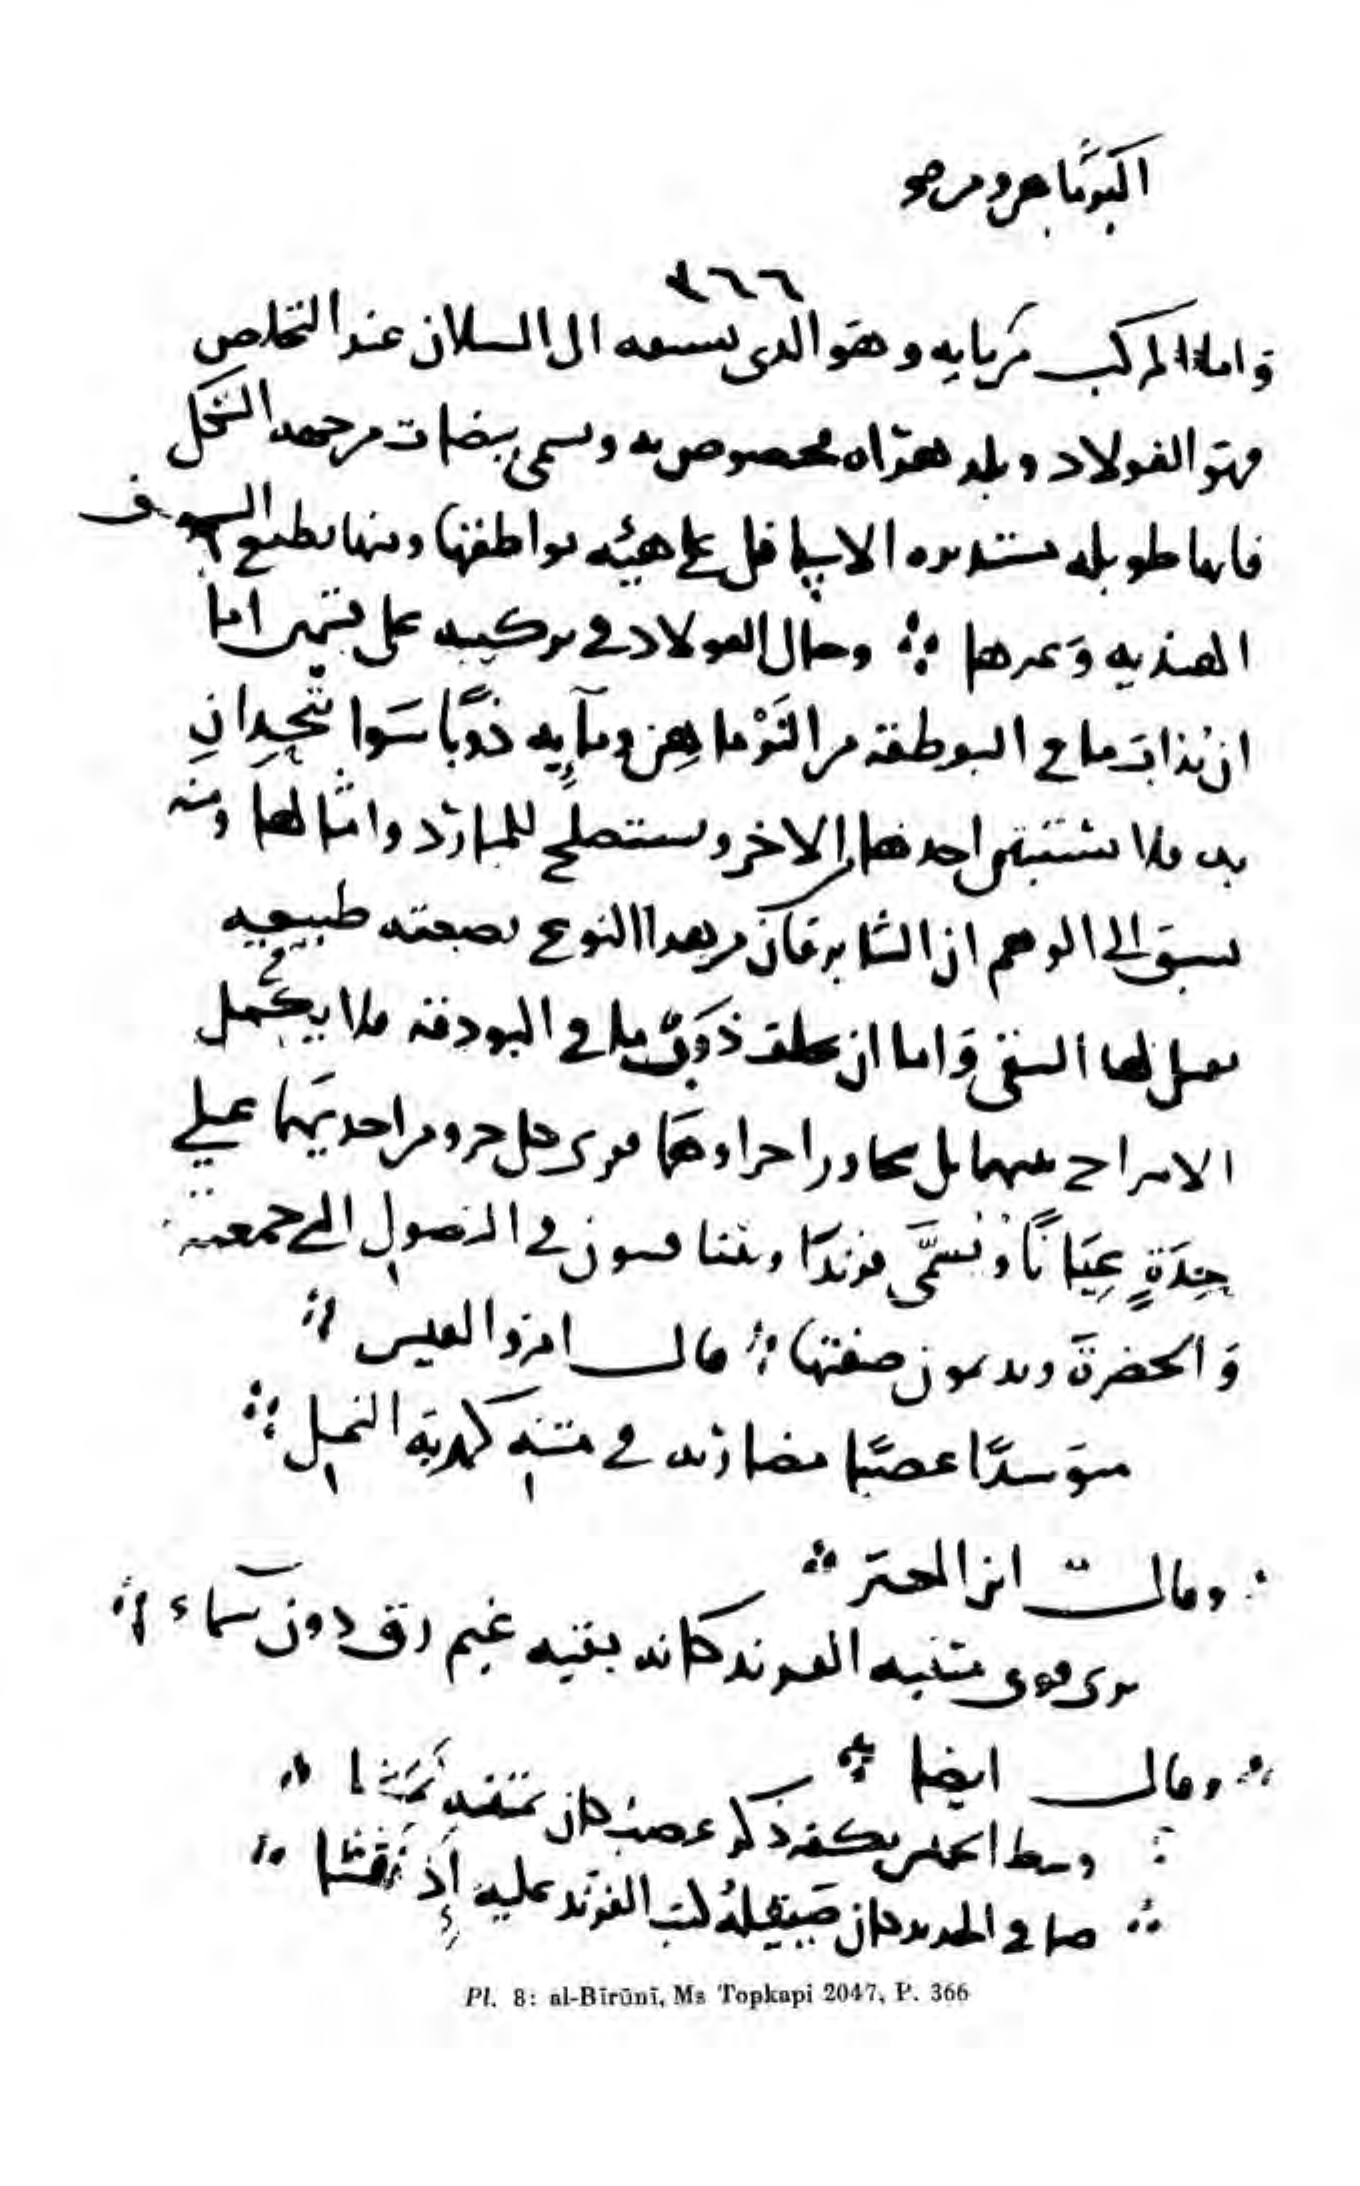 ٣٦٦
واما المركب من مايه وهو الذى يسبقه الى السيلان عند التخلص
فهو الفولاذ وبلد هراه مخصوص به وتسمى بيضات من جهه الشكل
فانها طويله مستديره الاسافل على هيئه بواطقها ومنها تطبع السيوف
الهنديه وغيرها وحال الفولاذ فى تركيبه على قسمين اما
ان يذاب ما فى البوطقه من النَرْماهِن ومآيِه ذَوبًا سَوا يتّحِدانِ
به فلا تستبين احدهما من الاخر ويستصلح للمبارد وامثالها ومنه
يسبق الى الوهم ان الشابرقان من هذا النوع بصبغته طبيعيه
تقبل لها السقى واما ان يختلف ذوب ما فى البودقه فلا يكمل
الامتزاج بينهما بل يتجاور اجزاوهما فيرى كل جزو من احديهما على
حِدَةٍ عِيَانًا وتُسَمَّى فرندا ويتنافسون فى النصول التى جمعته
والخضرة ويديمون صفتها قال امرؤ القيس
متوسدًا عضبًا مضاربه فى متنه كمدبة النمل
وقال ابن المعتز
ترى فوق متنيه الفرند كانه بقيه غيم رق دون سماء
وقال ايضا
وسط الخميس بكفه ذكر عضب كان بمتنه نمشا
صافى الحديد كان صيقله كتب الفرند عليه إذ نقشا
Pl. 8: al-Bīrūnī, Ms Topkapi 2047, P. 366